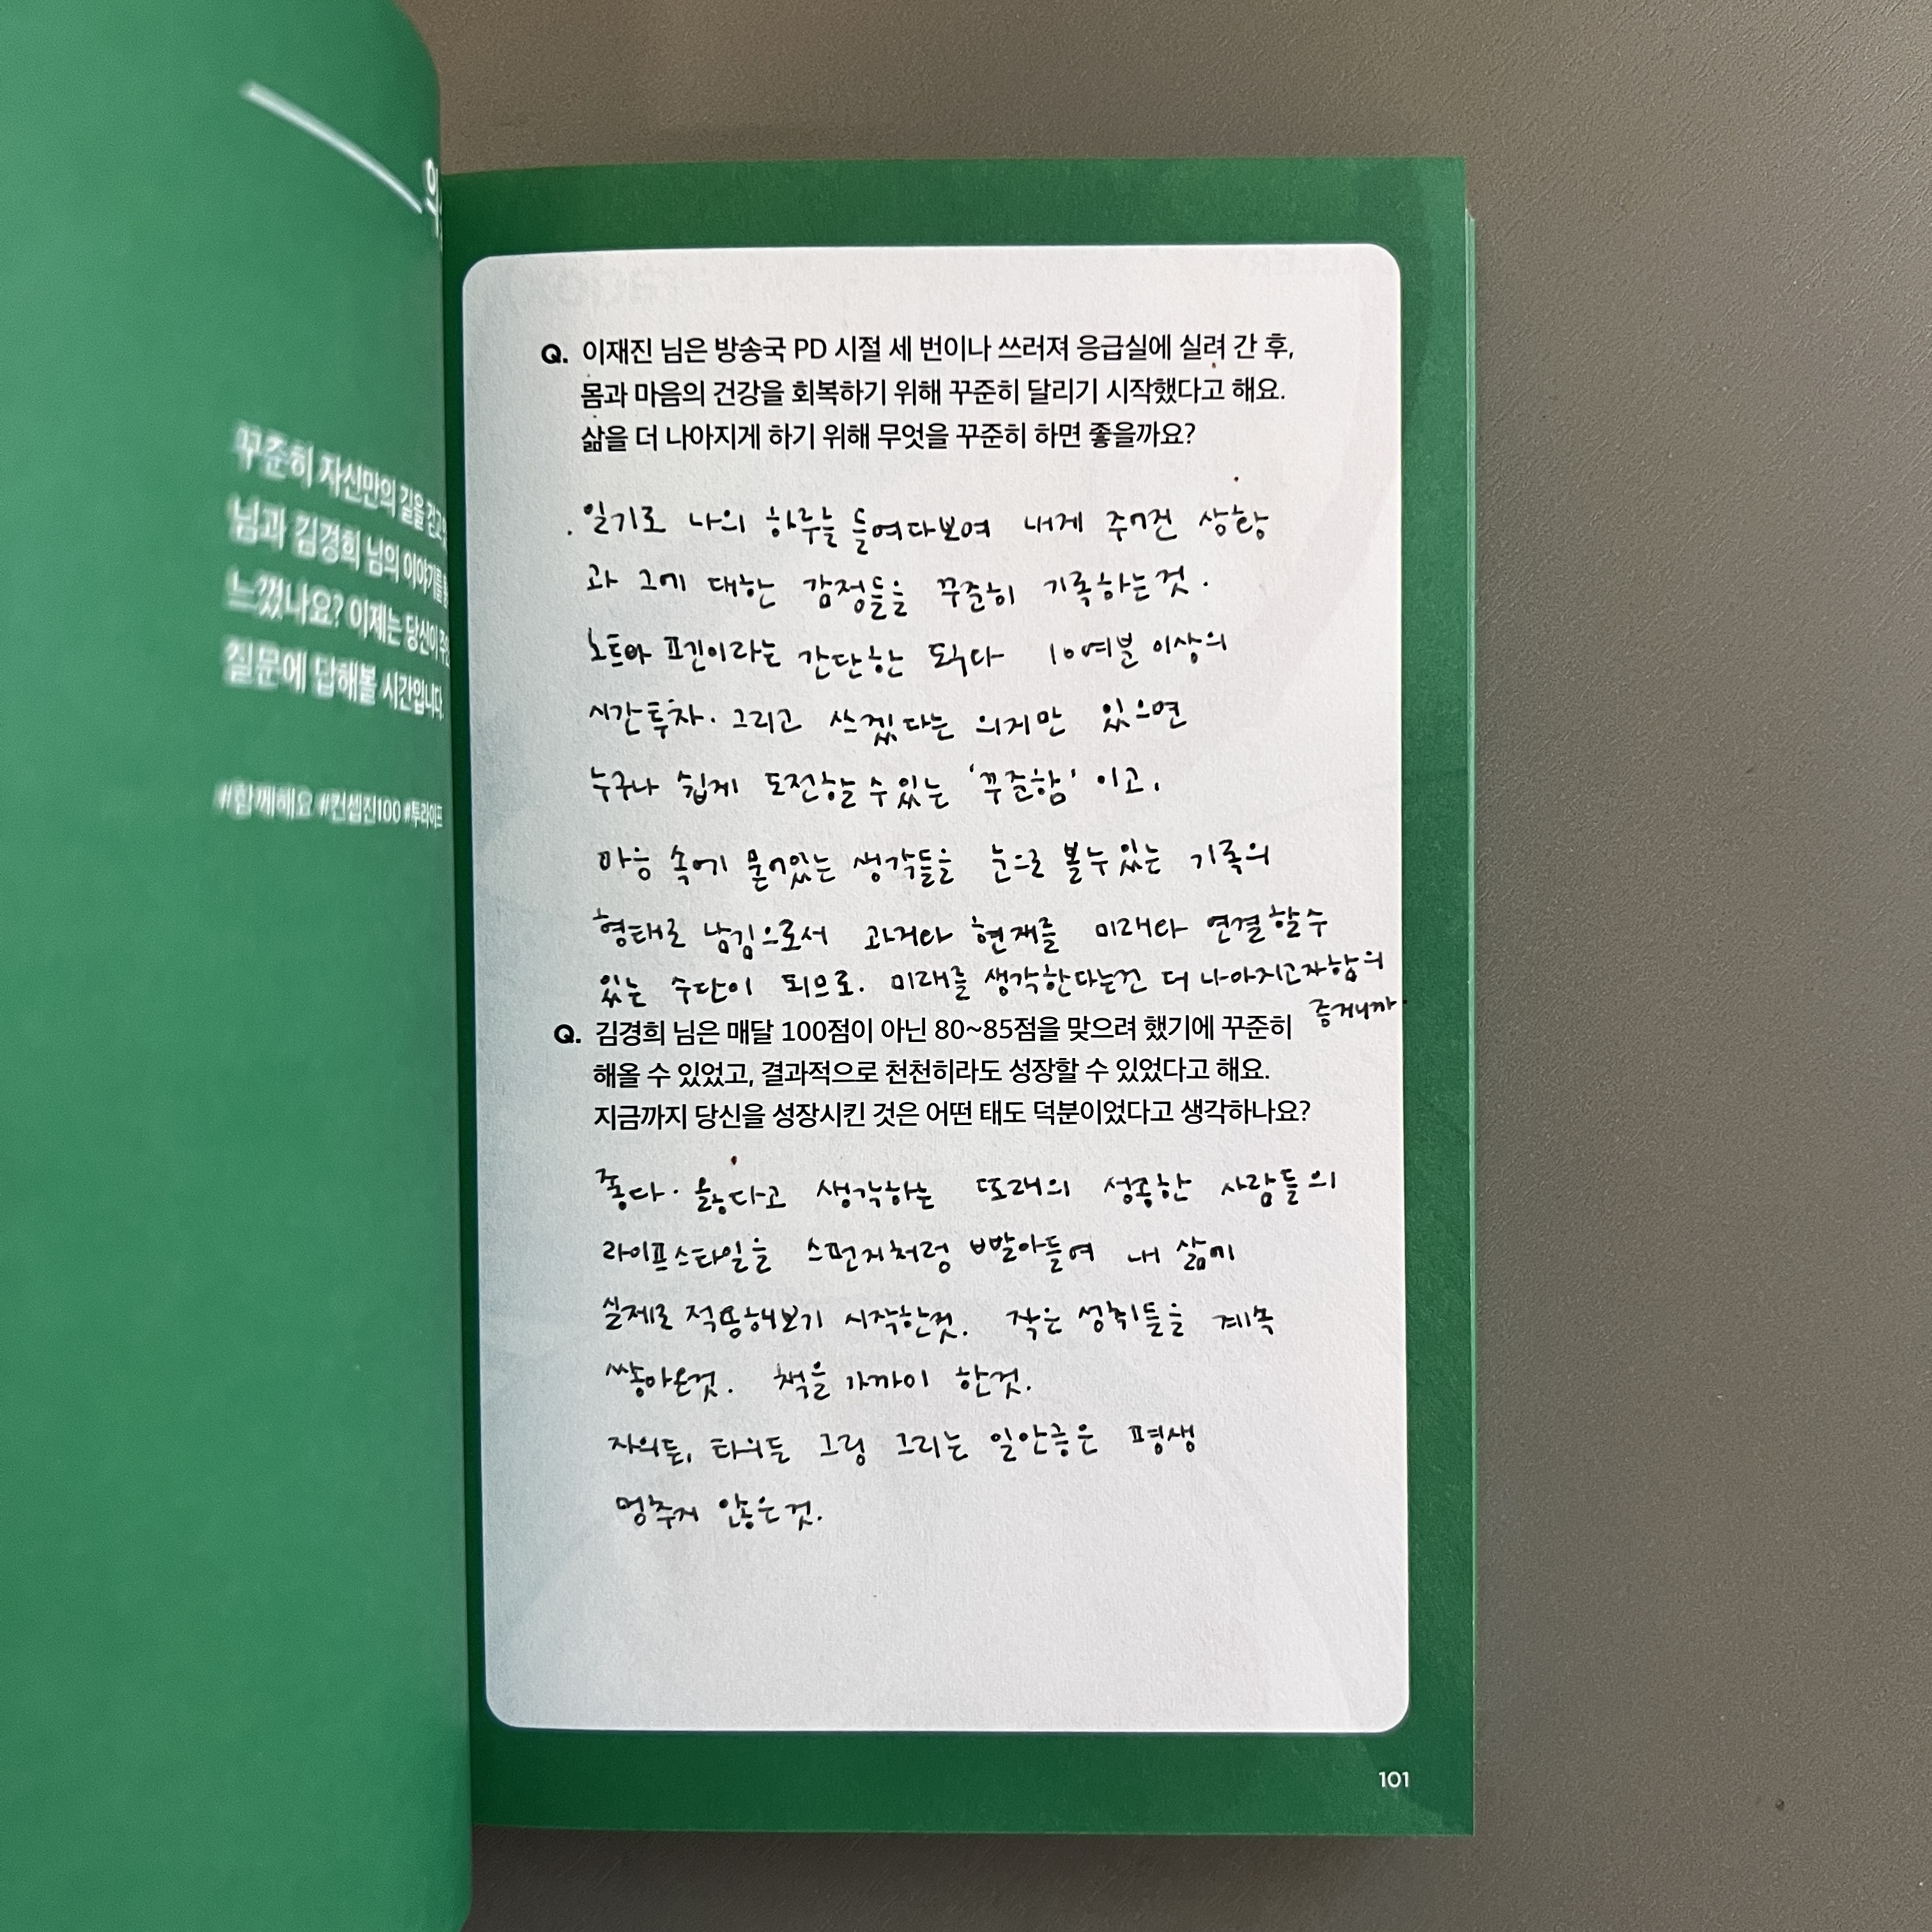 꾸준히 자신만의 길을 걷고
님과 김경희 님의 이야기를
느꼈나요? 이제는 당신이
질문에 답해볼 시간입니다.
#함께해요 #컨셉진100 #투라이프
Q. 이재진 님은 방송국 PD 시절 세 번이나 쓰러져 응급실에 실려 간 후,
몸과 마음의 건강을 회복하기 위해 꾸준히 달리기 시작했다고 해요.
삶을 더 나아지게 하기 위해 무엇을 꾸준히 하면 좋을까요?
. 일기로 나의 하루를 들여다보며 내게 주어진 상황
과 그에 대한 감정들을 꾸준히 기록하는것.
노트와 펜이라는 간단한 도구와 10여분 이상의
시간투자. 그리고 쓰겠다는 의지만 있으면
누구나 쉽게 도전할 수 있는 '꾸준함' 이고,
마음 속에 묻어있는 생각들을 눈으로 볼 수 있는 기록의
형태로 남김으로서 과거와 현재를 미래와 연결할 수
있는 수단이 되므로. 미래를 생각한다는건 더 나아지고자함의
증거니까.
Q. 김경희 님은 매달 100점이 아닌 80~85점을 맞으려 했기에 꾸준히
해올 수 있었고, 결과적으로 천천히라도 성장할 수 있었다고 해요.
지금까지 당신을 성장시킨 것은 어떤 태도 덕분이었다고 생각하나요?
좋다. 옳다고 생각하는 또래의 성공한 사람들의
라이프스타일을 스펀지처럼 빨아들여 내 삶에
실제로 적용해보기 시작한것. 작은 성취들을 계속
쌓아온것. 책을 가까이 한것.
자의든, 타의든 그림 그리는 일만큼은 평생
멈추지 않은것.
101